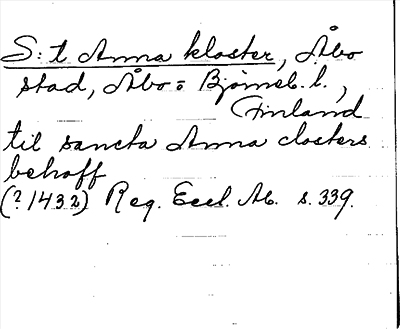 S:t Anna kloster, Åbo
stad, Åbo o Björneb. l.,
Finland
til sancta Anna closters
behoff
(? 1432) Reg. Eccl. Ab. s. 339.